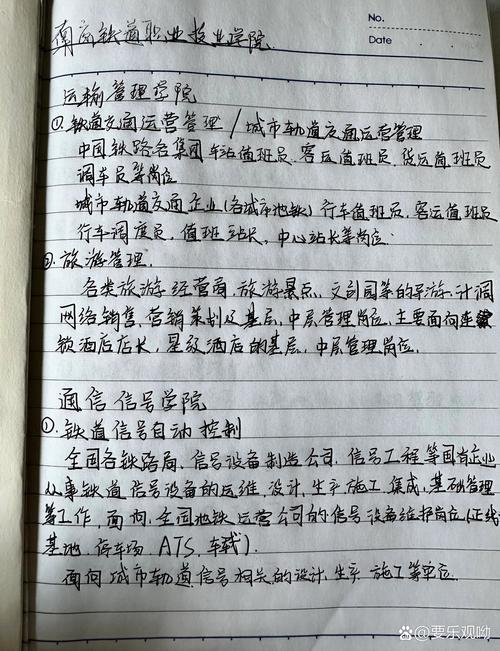 No.
Date
南京铁道职业技术学院
运输管理学院
①铁道交通运营管理/城市轨道交通运营管理
中国铁路各集团车站值班员、客运值班员、货运值班员
调车员等岗位
城市轨道交通企业(各城市地铁)行车值班员,客运值班员
行车调度员,值班站长,中心站长等岗位.
②.旅游管理.
各类旅游经营商,旅游景点,文创园等的导游、计调
网络销售、营销策划及基层,中层管理岗位.主要面向连锁
锁酒店店长,星级酒店的基层,中层管理岗位.
通信信号学院
①.铁道信号自动控制
全国各铁路局、信号设备制造公司,信号工程等国有企业
从事铁道信号设备的运维,设计,生产施工,集成,基础管理
等工作,面向,全国地铁运营公司的信号设备维护岗位(正线
基地,停车场,ATS,车载).
面向城市轨道信号相关的设计,生产施工等单位.
@要乐观呦